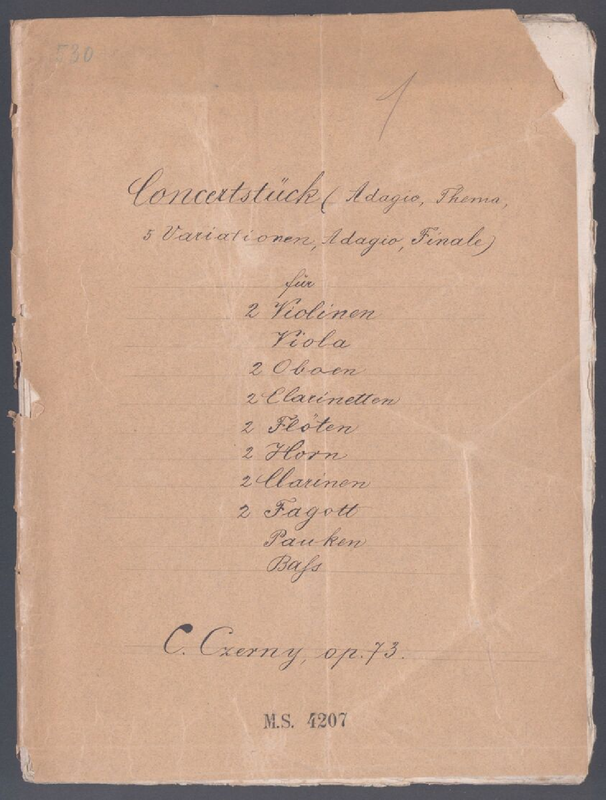 530
1
Concertstück (Adagio, Thema,
5 Variationen, Adagio, Finale)
für
2 Violinen
Viola
2 Oboen
2 Clarinetten
2 Flöten
2 Horn
2 Clarinen
2 Fagott
Pauken
Baſs
C. Czerny, op. 73.
M.S. 4207